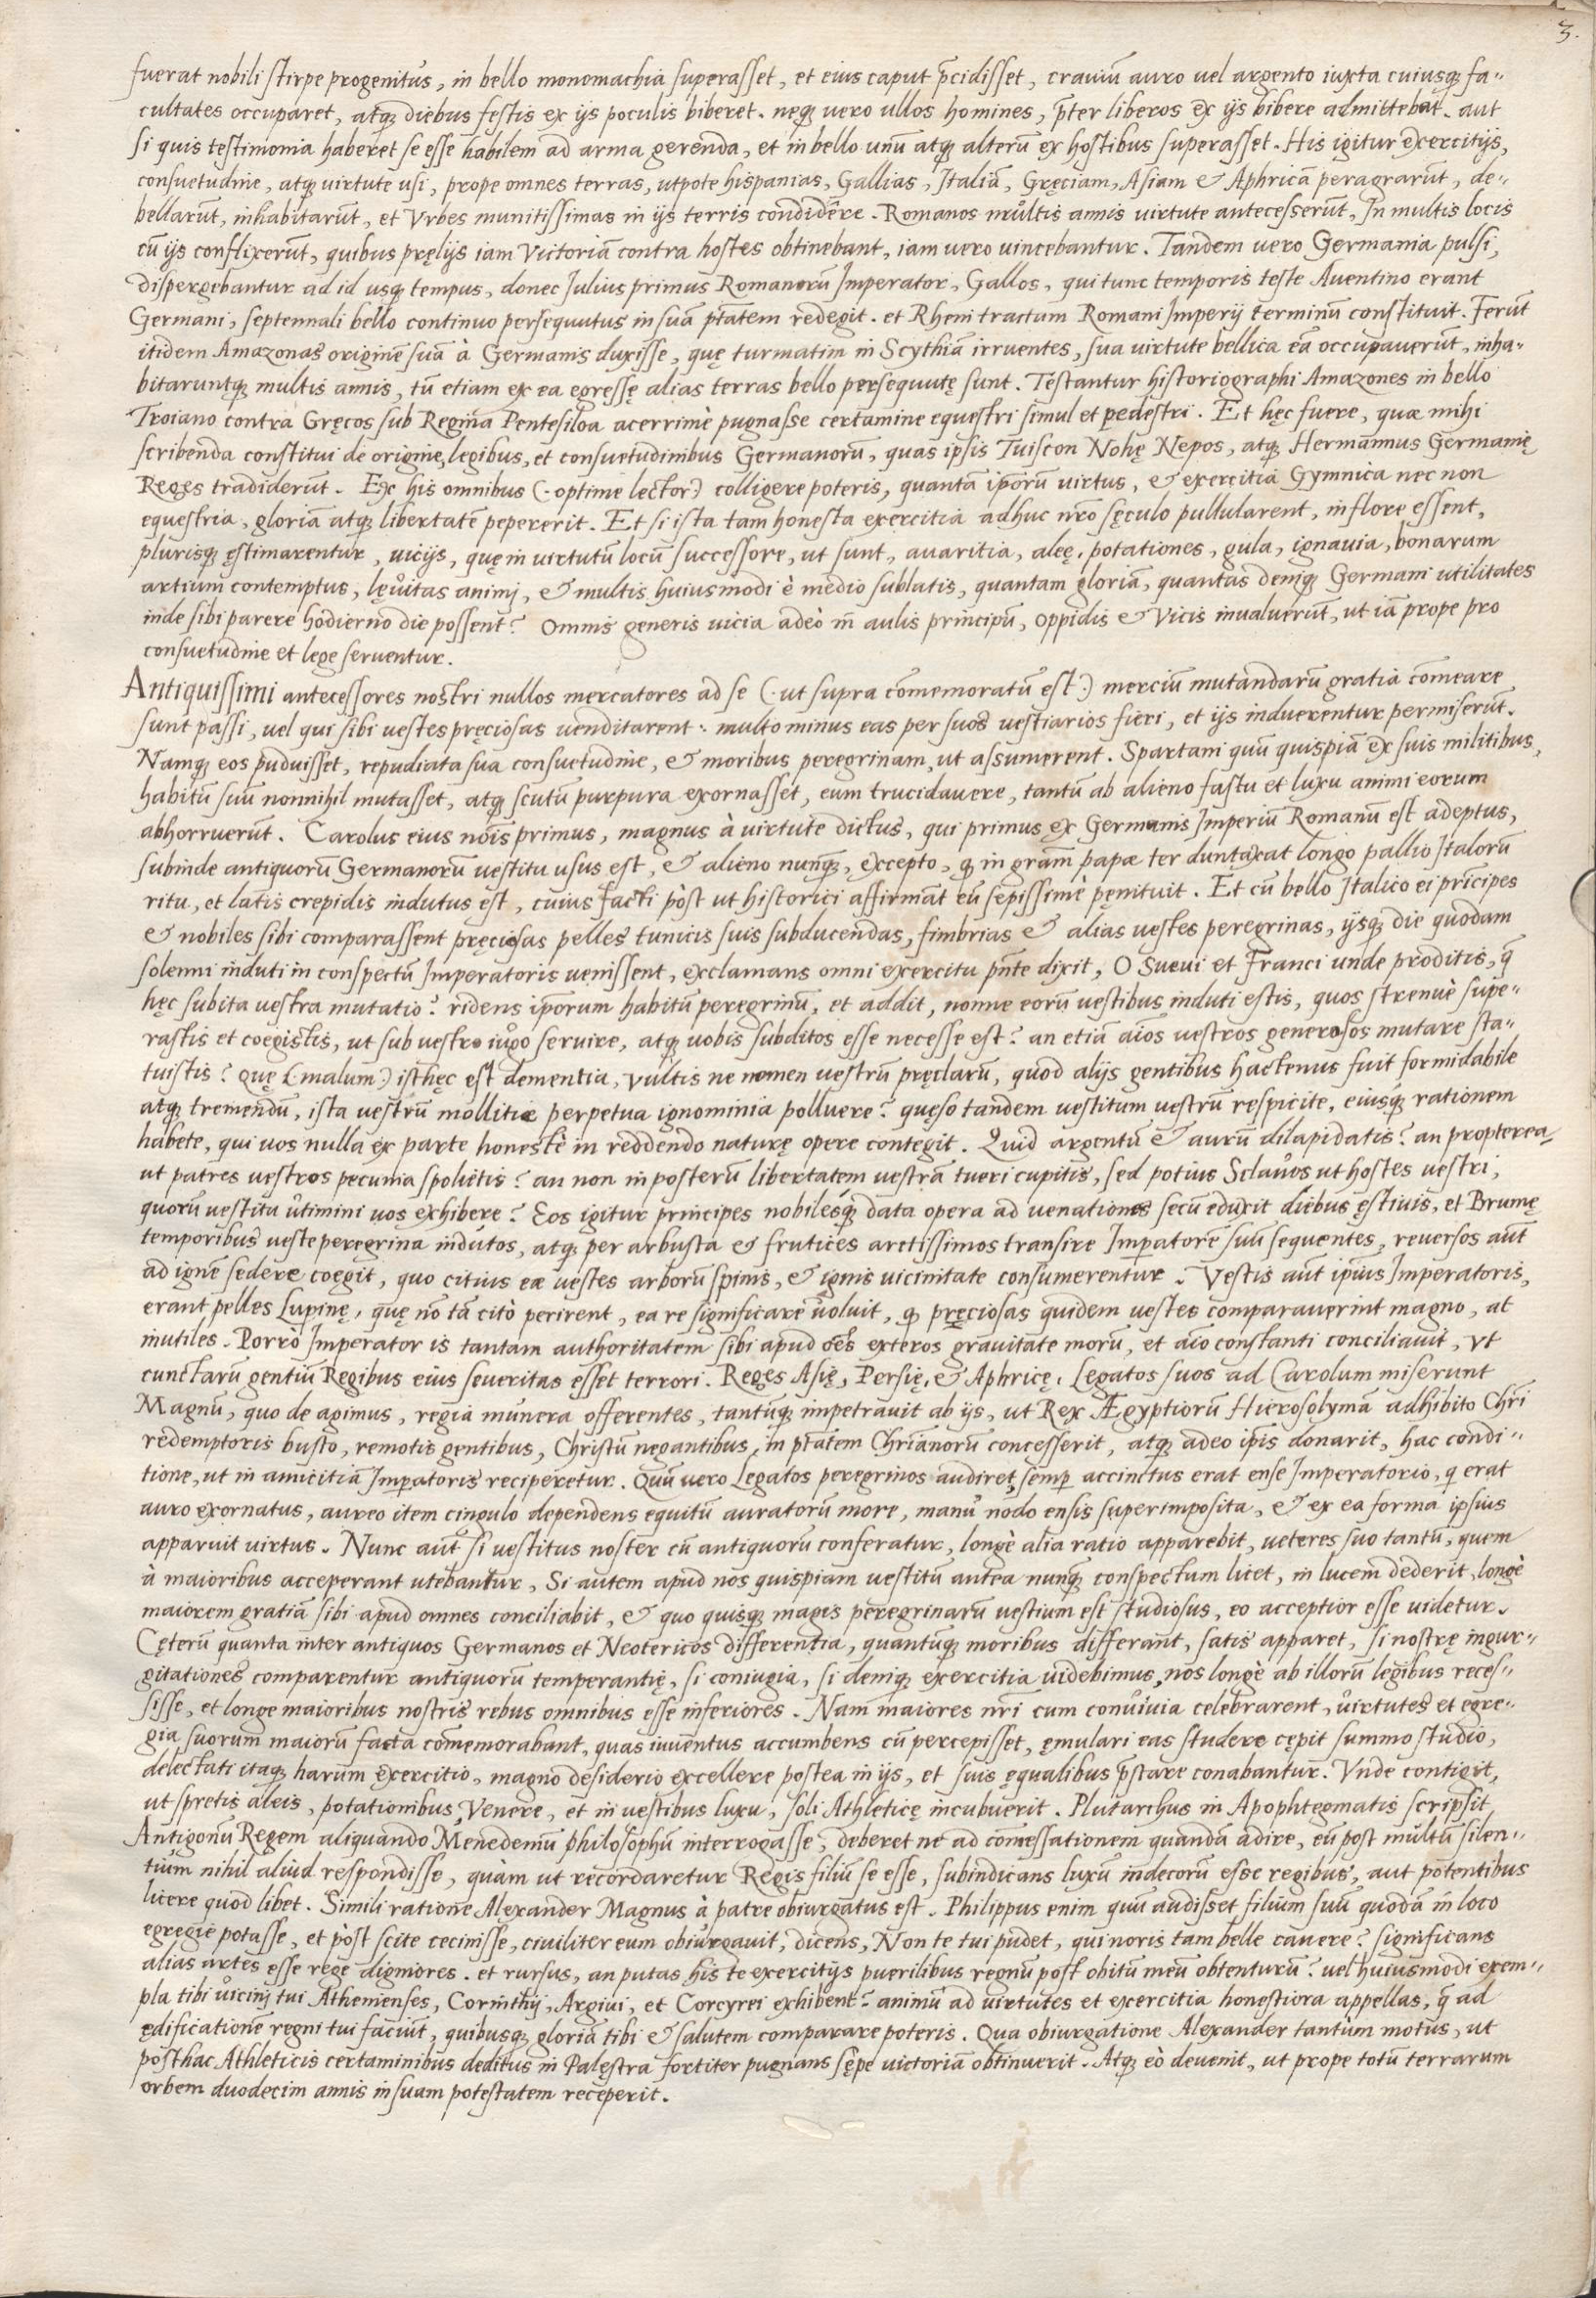 3.
fuerat nobili stirpe progenitus, in bello monomachia superasset, et eius caput p̄cidisset, craniū auro uel argento iuxta cuiusq́ fa-
cultates occuparet, atq́ diebus festis ex ijs poculis biberet. neq́ uero ullos homines, p̄ter liberos ex ijs bibere admittebat. aut
si quis testimonia haberet se esse habilem ad arma gerenda, et in bello unū atq́ alterū ex hostibus superasset. His igitur exercitijs,
consuetudine, atq́ uirtute usi, prope omnes terras, utpote hispanias, Gallias, Italiā, Gręciam, Asiam & Aphricā peragrarūt, de-
bellarūt, inhabitarūt, et Vrbes munitissimas in ijs terris condidêre. Romanos multis annis uirtute antecesserūt, In multis locis
cū ijs conflixerūt, quibus pręlijs iam Victoriā contra hostes obtinebant, iam uero uincebantur. Tandem uero Germania pulsi,
dispergebantur ad id usq́ tempus, donec Iulius primus Romanorū Imperator, Gallos, qui tunc temporis teste Auentino erant
Germani, septennali bello continuo persequutus in suā ptātem redegit. et Rheni tractum Romani Imperij terminū constituit. Ferūt
itidem Amazonas originē suā à Germanis duxisse, quę turmatim in Scythiā irruentes, sua uirtute bellica eā occupauerūt, inha-
bitaruntq́ multis annis, tū etiam ex ea egressę alias terras bello persequutę sunt. Testantur historiographi Amazones in bello
Troiano contra Gręcos sub Regina Pentesiloa acerrimè pugnasse certamine equestri simul et pedestri. Et hęc fuere, quæ mihi
scribenda constitui de origine, legibus, et consuetudinibus Germanorū, quas ipsis Tuiscon Nohę Nepos, atq́ Hermannus Germanię
Reges tradiderūt. Ex his omnibus (: optime lector :) colligere poteris, quantā ip̄orū uirtus, & exercitia Gymnica nec non
equestria, gloriā atq́ libertatē pepererit. Et si ista tam honesta exercitia adhuc nr̄o sęculo pullularent, in flore essent,
plurisq́ ęstimarentur, uicijs, quę in uirtutū locū successore, ut sunt, auaritia, aleę, potationes, gula, ignauia, bonarum
artium contemptus, lęuitas animj, & multis huiusmodi è medio sublatis, quantam gloriā, quantas deniq́ Germani utilitates
inde sibi parere hodierno die possent? Omnis generis uicia adeò in aulis principū, oppidis & Vicis inualuerūt, ut iā prope pro
consuetudine et lege seruentur.
Antiquissimi antecessores nostri nullos mercatores ad se (: ut supra com̄emoratū est :) merciū mutandarū gratia com̄eare
sunt passi, uel qui sibi uestes pręciosas uenditarent: multo minus eas per suos uestiarios fieri, et ijs induerentur permiserūt.
Namq́ eos puduisset, repudiata sua consuetudine, & moribus peregrinam, ut assumerent. Spartani quū quispiā ex suis militibus,
habitū suū nonnihil mutasset, atq́ scutū purpura exornasset, eum trucidauere, tantū ab alieno fastu et luxu animi eorum
abhorruerūt. Carolus eius nōis primus, magnus à uirtute dictus, qui primus ex Germanis Imperiū Romanū est adeptus,
subinde antiquorū Germanorū uestitu usus est, & alieno nunq́, excepto, q̄ in grām papæ ter duntaxat longo pallio Italorū
ritu, et latis crepidis indutus est, cuius facti pòst ut historici affirmāt eū sępissimè pęnituit. Et cū bello Italico ei principes
& nobiles sibi comparassent pręciosas pelles tunicis suis subducendas, fimbrias & alias uestes peregrinas, ijsq́ die quodam
solenni induti in conspectū Imperatoris uenissent, exclamans omni exercitu pn̄te dixit, O Sueui et Franci unde proditis, q̄
hęc subita uestra mutatio? ridens ip̄orum habitū peregrinū, et addit, nonne eorū uestibus induti estis, quos strenuè supe-
rastis et coegistis, ut sub uestro iugo seruire, atq́ uobis subditos esse necesse est? an etiā aīos uestros generosos mutare sta-
tuistis? quę (: malum :) isthęc est dementia, vultis ne nomen uestrū pręclarū, quod alijs gentibus hactenus fuit formidabile
atq́ tremendū, ista uestrū mollitiæ perpetua ignominia polluere? quęso tandem uestitum uestrū respicite, eiusq́ rationem
habete, qui uos nulla ex parte honestè in reddendo naturę opere contegit. Quid argentū & aurū dilapidatis? an propterea
ut patres uestros pecunia spolietis? an non in posterū libertatem uestrā tueri cupitis, sed potius Sclauos ut hostes uestri,
quorū uestitu utimini uos exhibere? Eos igitur principes nobilesq́ data opera ad uenationes secū eduxit diebus ęstiuis, et Brumę
temporibus ueste peregrina indutos, atq́ per arbusta & frutices arctissimos transire Imp̄atorē suū sequentes, reuersos aūt
ad ignē sedere coegit, quo citius eæ uestes arborū spinis, & ignis uicinitate consumerentur. Vestis aūt ip̄ius Imperatoris,
erant pelles Lupinę, quę nō tā citò perirent, ea re significare uoluit, q̄ pręciosas quidem uestes comparauerint magno, at
inutiles. Porrò Imperator is tantam authoritatem sibi apud oēs exteros grauitate morū, et aīo constanti conciliauit, vt
cunctarū gentiū Regibus eius seueritas esset terrori. Reges Asię, Persię, & Aphricę, Legatos suos ad Carolum miserunt
Magnū, quo de agimus, regia munera offerentes, tantūq́ impetrauit ab ijs, ut Rex Ægyptiorū Hierosolymā adhibito Chri
redemptoris busto, remotis gentibus, Christū negantibus, in ptātem Chrianorū concesserit, atq́ adeo ip̄is donarit, hac condi-
tione, ut in amicitiā Imp̄atoris reciperetur. Quū uero Legatos peregrinos audiret, semp̄ accinctus erat ense Imperatorio, q̄ erat
auro exornatus, aureo item cingulo dependens equitū auratorū more, manu nodo ensis superimposita, & ex ea forma ipsius
apparuit uirtus. Nunc aūt si uestitus noster cū antiquorū conferatur, longè alia ratio apparebit, ueteres suo tantū, quem
à maioribus acceperant utebantur, Si autem apud nos quispiam uestitū antea nunq́ conspectum licet, in lucem dederit, longè
maiorem gratiā sibi apud omnes conciliabit, & quo quisq́ magis peregrinarū uestium est studiosus, eo acceptior esse uidetur.
Cęterū quanta inter antiquos Germanos et Neotericos differentia, quantūq́ moribus differant, satis apparet, si nostrę ingur-
gitationes comparentur antiquorū temperantię, si coniugia, si deniq́ exercitia uidebimus, nos longè ab illorū legibus reces-
sisse, et longe maioribus nostris rebus omnibus esse inferiores. Nam maiores nr̄i cum conuiuia celebrarent, uirtutes et egre-
gia suorum maiorū facta com̄emorabant, quas iuuentus accumbens cū percepisset, ęmulari eas studere cępit summo studio,
delectati itaq́ harum exercitio, magno desiderio excellere postea in ijs, et suis ęqualibus p̄stare conabantur. Vnde contigit,
ut spretis aleis, potationibus, Venere, et in uestibus luxu, soli Athleticę incubuerit. Plutarchus in Apophtegmatis scripsit
Antigonū Regem aliquando Menedemū philosophū interrogasse, deberet ne ad comessationem quandā adire, eū post multū silen-
tium nihil aliud respondisse, quam ut recordaretur Regis filiū se esse, subindicans luxū indecorū esse regibus, aut potentibus
licere quod libet. Simili ratione Alexander Magnus à patre obiurgatus est. Philippus enim quū audisset filium suū quodā in loco
egregie potasse, et pòst scite cecinisse, ciuiliter eum obiurgauit, dicens, Non te tui pudet, qui noris tam belle canere? significans
alias artes esse rege digniores. et rursus, an putas his te exercitijs puerilibus regnū post obitū meū obtenturū? uel huiusmodi exem-
pla tibi uicinj tui Athenienses, Corinthij, Argiui, et Corcyrei exhibent? animū ad uirtutes et exercitia honestiora appellas, q̄ ad
ędificationē regni tui faciūt, quibusq́ gloriā tibi & salutem comparare poteris. Qua obiurgatione Alexander tantùm motus, ut
posthac Athleticis certaminibus deditus in Palęstra fortiter pugnans sępe uictoriā obtinuerit. Atq́ eò deuenit, ut prope totū terrarum
orbem duodecim annis in suam potestatem receperit.